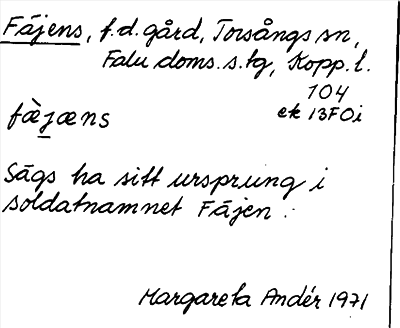 Fäjens, f.d. gård, Torsångs sn,
Falu doms.s.tg, Kopp. l.
104
ek 13F0i
fæ̀jæns
Sägs ha sitt ursprung i
soldatnamnet Fäjen.
Margareta Andér 1971